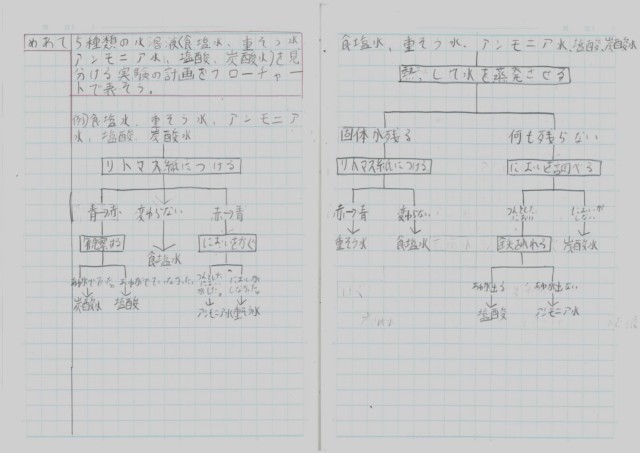 めあて
5種類の水溶液(食塩水、重そう水
アンモニア水、塩酸、炭酸水)を見
分ける実験の計画をフローチャー
トで表そう。
(例)食塩水、重そう水、アンモニア
水、塩酸、炭酸水
リトマス紙につける
青→赤 変わらない 赤→青
観察する
においをかぐ
食塩水
あわがでていた。 あわがでていなかった。
つんとした
においが
した。
においが
しなかった。
炭酸水 塩酸
アンモニア水 重そう水
食塩水、重そう水、アンモニア水、塩酸、炭酸水
熱して水を蒸発させる
固体が残る 何も残らない
リトマス紙につける
においを調べる
赤→青 変わらない
重そう水 食塩水
つんとした
におい
においが
しない
鉄を入れる
炭酸水
あわが出る あわが出ない
塩酸 アンモニア水